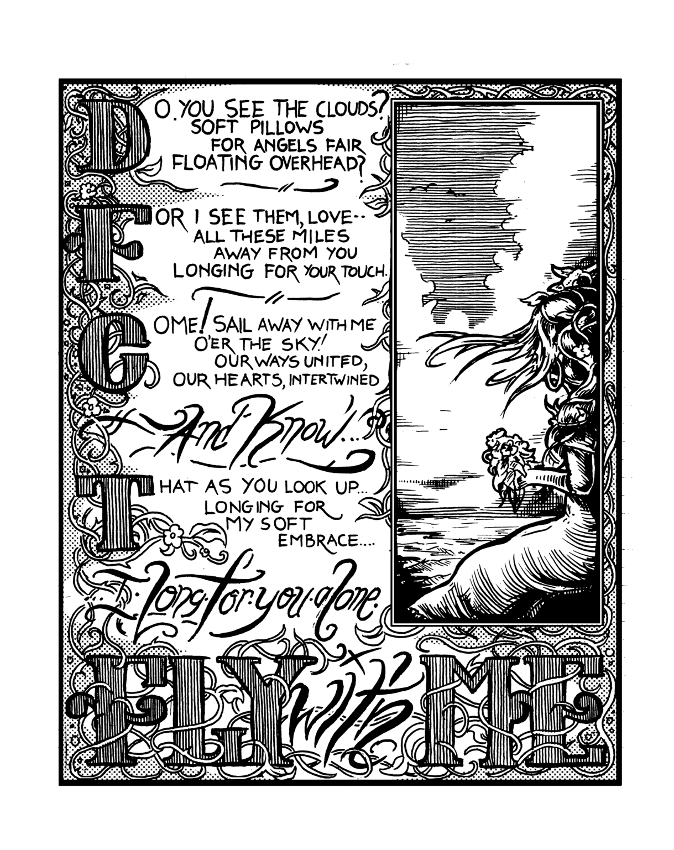 DO YOU SEE THE CLOUDS?
SOFT PILLOWS
FOR ANGELS FAIR
FLOATING OVERHEAD?
FOR I SEE THEM, LOVE--
ALL THESE MILES
AWAY FROM YOU
LONGING FOR YOUR TOUCH.
COME! SAIL AWAY WITH ME
O'ER THE SKY!
OUR WAYS UNITED,
OUR HEARTS, INTERTWINED
And Know...
THAT AS YOU LOOK UP...
LONGING FOR
MY SOFT
EMBRACE....
I long for you alone.
FLY with ME